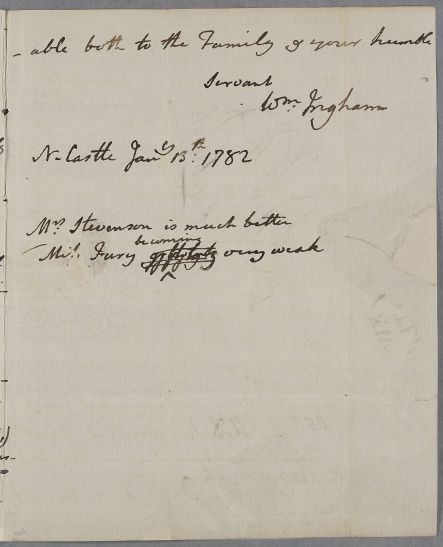 -able both to the Family & your humble
Servant
Wm. Ingham
N-Castle Jany. 13th. 1782
Mrs Stevenson is much better
becoming
Mrs. Fury very weak